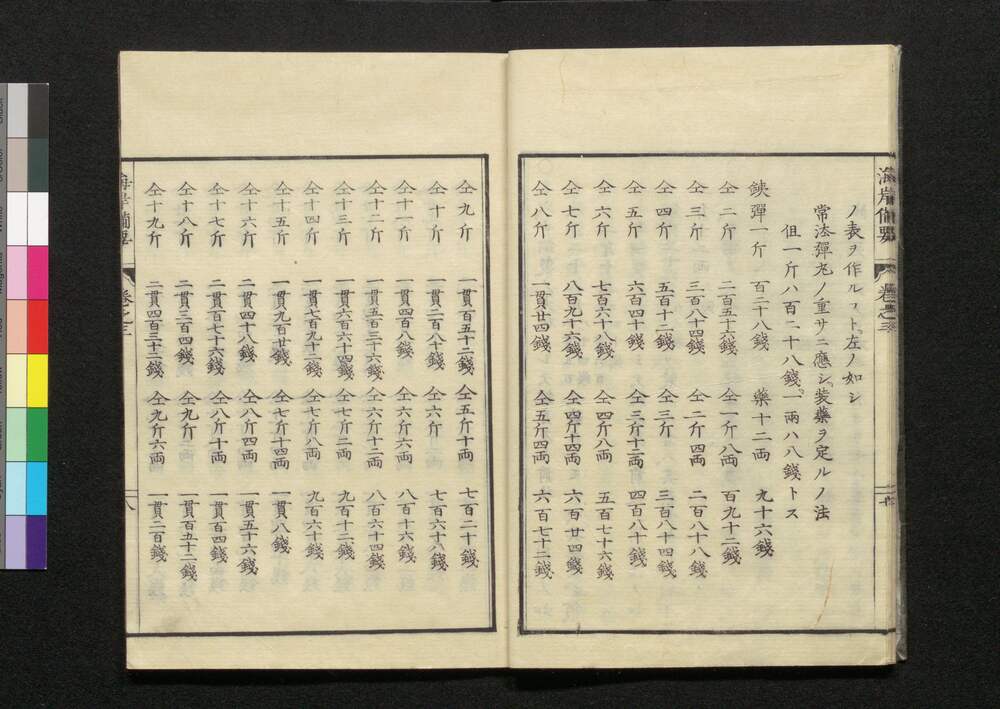 海岸備要 卷之三
ノ表ヲ作ルヿト左ノ如シ
常法彈丸ノ重サニ應シ装藥ヲ定ルノ法
但一斤ハ百二十八錢一両ハ八錢トス
鉄彈一斤 百二十八錢 藥十二両 九十六錢
仝二斤 二百五十六錢 仝一斤八両 百九十二錢
仝三斤 三百八十四錢 仝二斤四両 二百八十八錢
仝四斤 五百十二錢 仝三斤 三百八十四錢
仝五斤 六百四十錢 仝三斤十二両 四百八十錢
仝六斤 七百六十八錢 仝四斤八両 五百七十六錢
仝七斤 八百九十六錢 仝四斤十四両 六百廿四錢
仝八斤 一貫廿四錢 仝五斤四両 六百七十二錢
仝九斤 一貫百五十二錢 仝五斤十両 七百二十錢
仝十斤 一貫二百八十錢 仝六斤 七百六十八錢
仝十一斤 一貫四百八錢 仝六斤六両 八百十六錢
仝十二斤 一貫五百三十六錢 仝六斤十二両 八百六十四錢
仝十三斤 一貫六百六十四錢 仝七斤二両 九百十二錢
仝十四斤 一貫七百九十二錢 仝七斤八両 九百六十錢
仝十五斤 一貫九百廿錢 仝七斤十四両 一貫八錢
仝十六斤 二貫四十八錢 仝八斤四両 一貫五十六錢
仝十七斤 二貫百七十六錢 仝八斤十両 一貫百四錢
仝十八斤 二貫三百四錢 仝九斤 一貫百五十二錢
仝十九斤 二貫四百三十二錢 仝九斤六両 一貫二百錢
海岸備要 卷之三